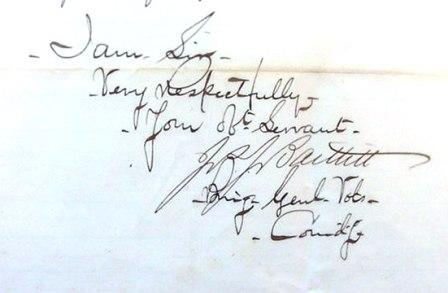 - I am Sir -
- Very respectfully -
- Your Obt Servant -
J J Bartlett
- Brig Genl Vols -
- Comdg